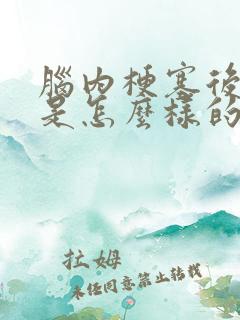 腦內梗塞後
是怎麼樣的
拉姆
未经同意禁止转载